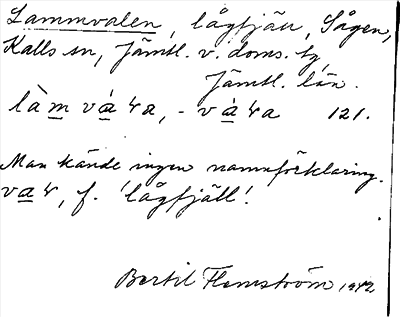 Lammvalen, lågfjäll, Sågen,
Kalls sn, Jämtl. v. doms. tg,
Jämtl. län.
làm váɽa, - váɽa 121.
Man kände ingen namnförklaring.
vaɽ, f. 'lågfjäll'.
Bertil Flemström 1942